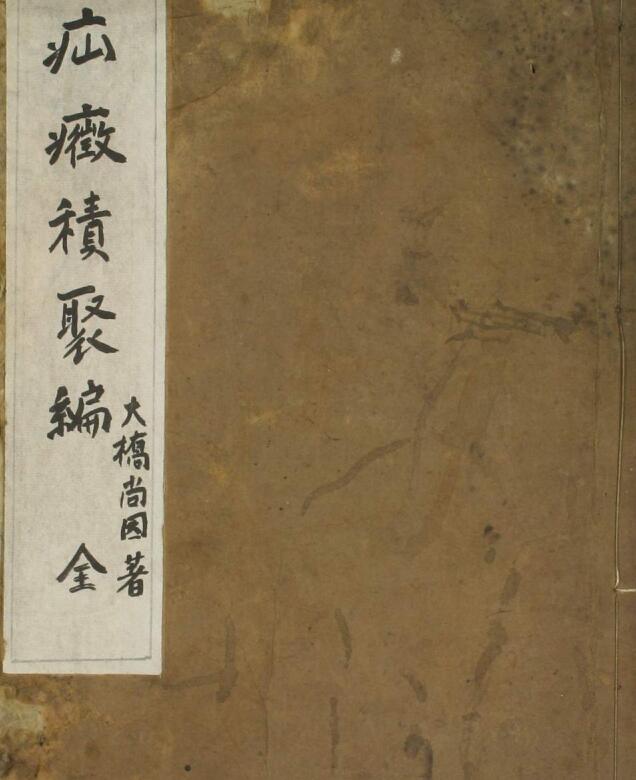 疝癥積聚編 全
大橋尚因著